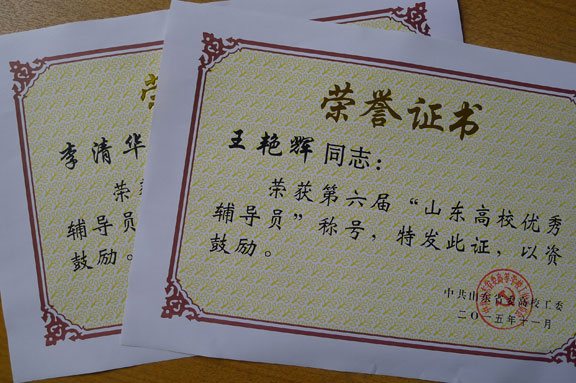 荣誉证书
王艳辉同志：
荣获第六届“山东高校优秀
辅导员”称号，特发此证，以资
鼓励。
中共山东省委高校工委
二〇一五年十一月
李清华
荣
辅导员
鼓励。